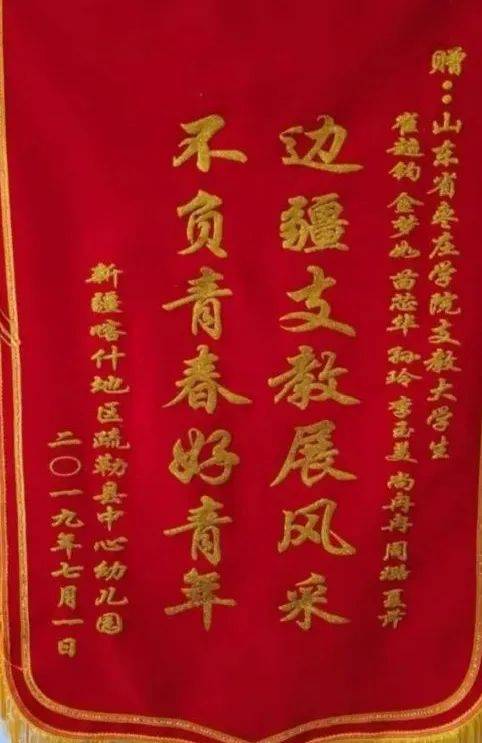 赠：山东省枣庄学院支教大学生
崔超钧 金梦如 苗芯华 孙玲 李玉美 尚冉冉 周璐 夏萍
边疆支教展风采
不负青春好青年
新疆喀什地区疏勒县中心幼儿园
二〇一九年七月一日